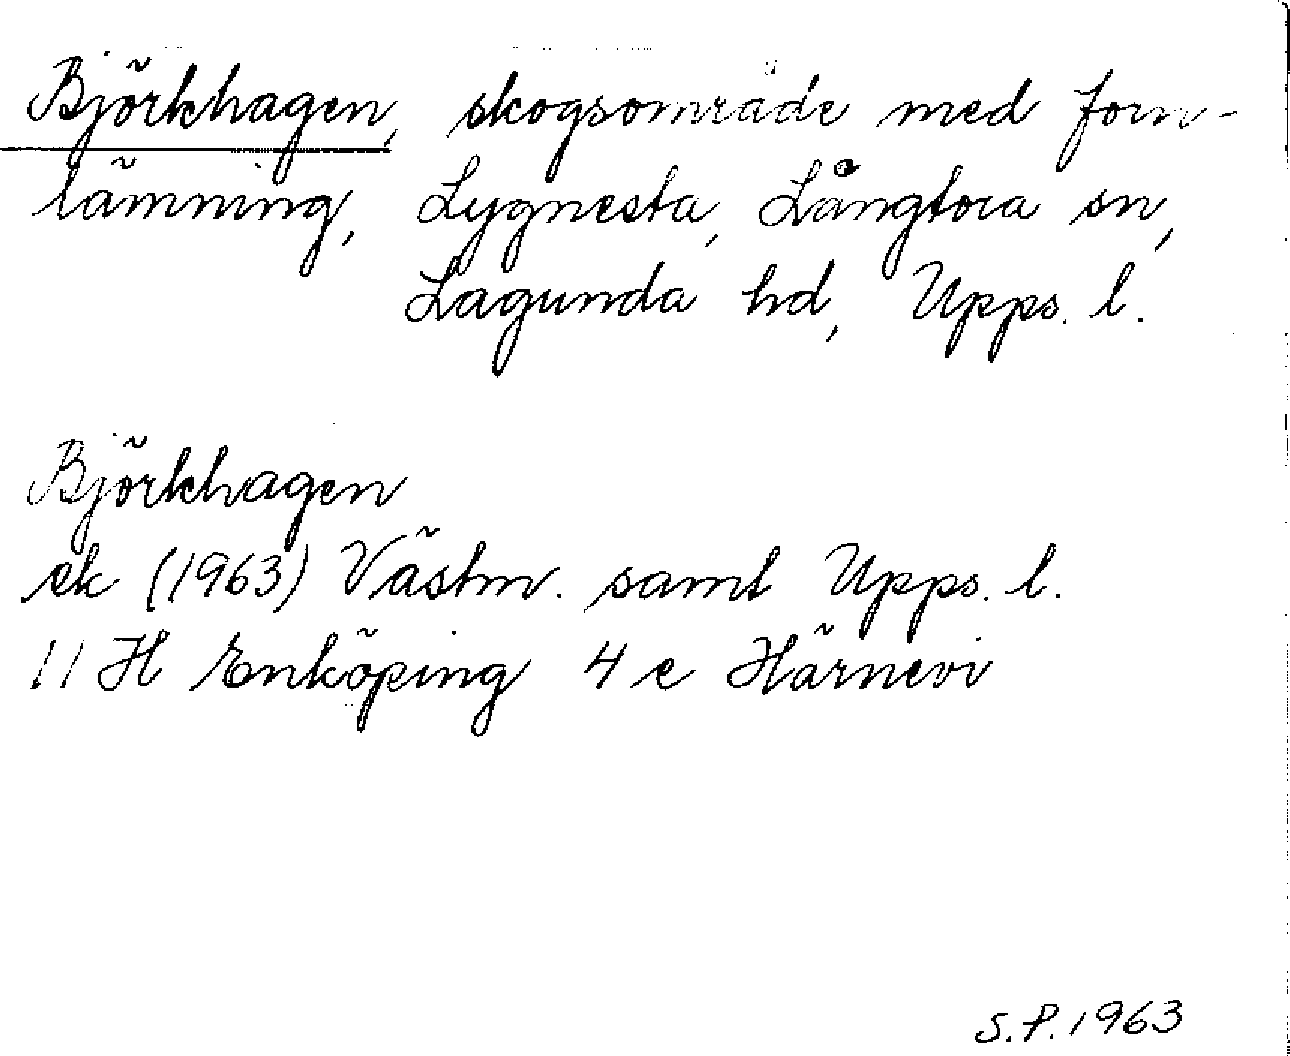 Björkhagen, skogsområde med forn-
lämning, Lygnesta, Långtora sn,
Lagunda hd, Upps. l.
Björkhagen
ek (1963) Västm. samt Upps. l.
11 H Enköping 4 e Härnevi
S.P. 1963